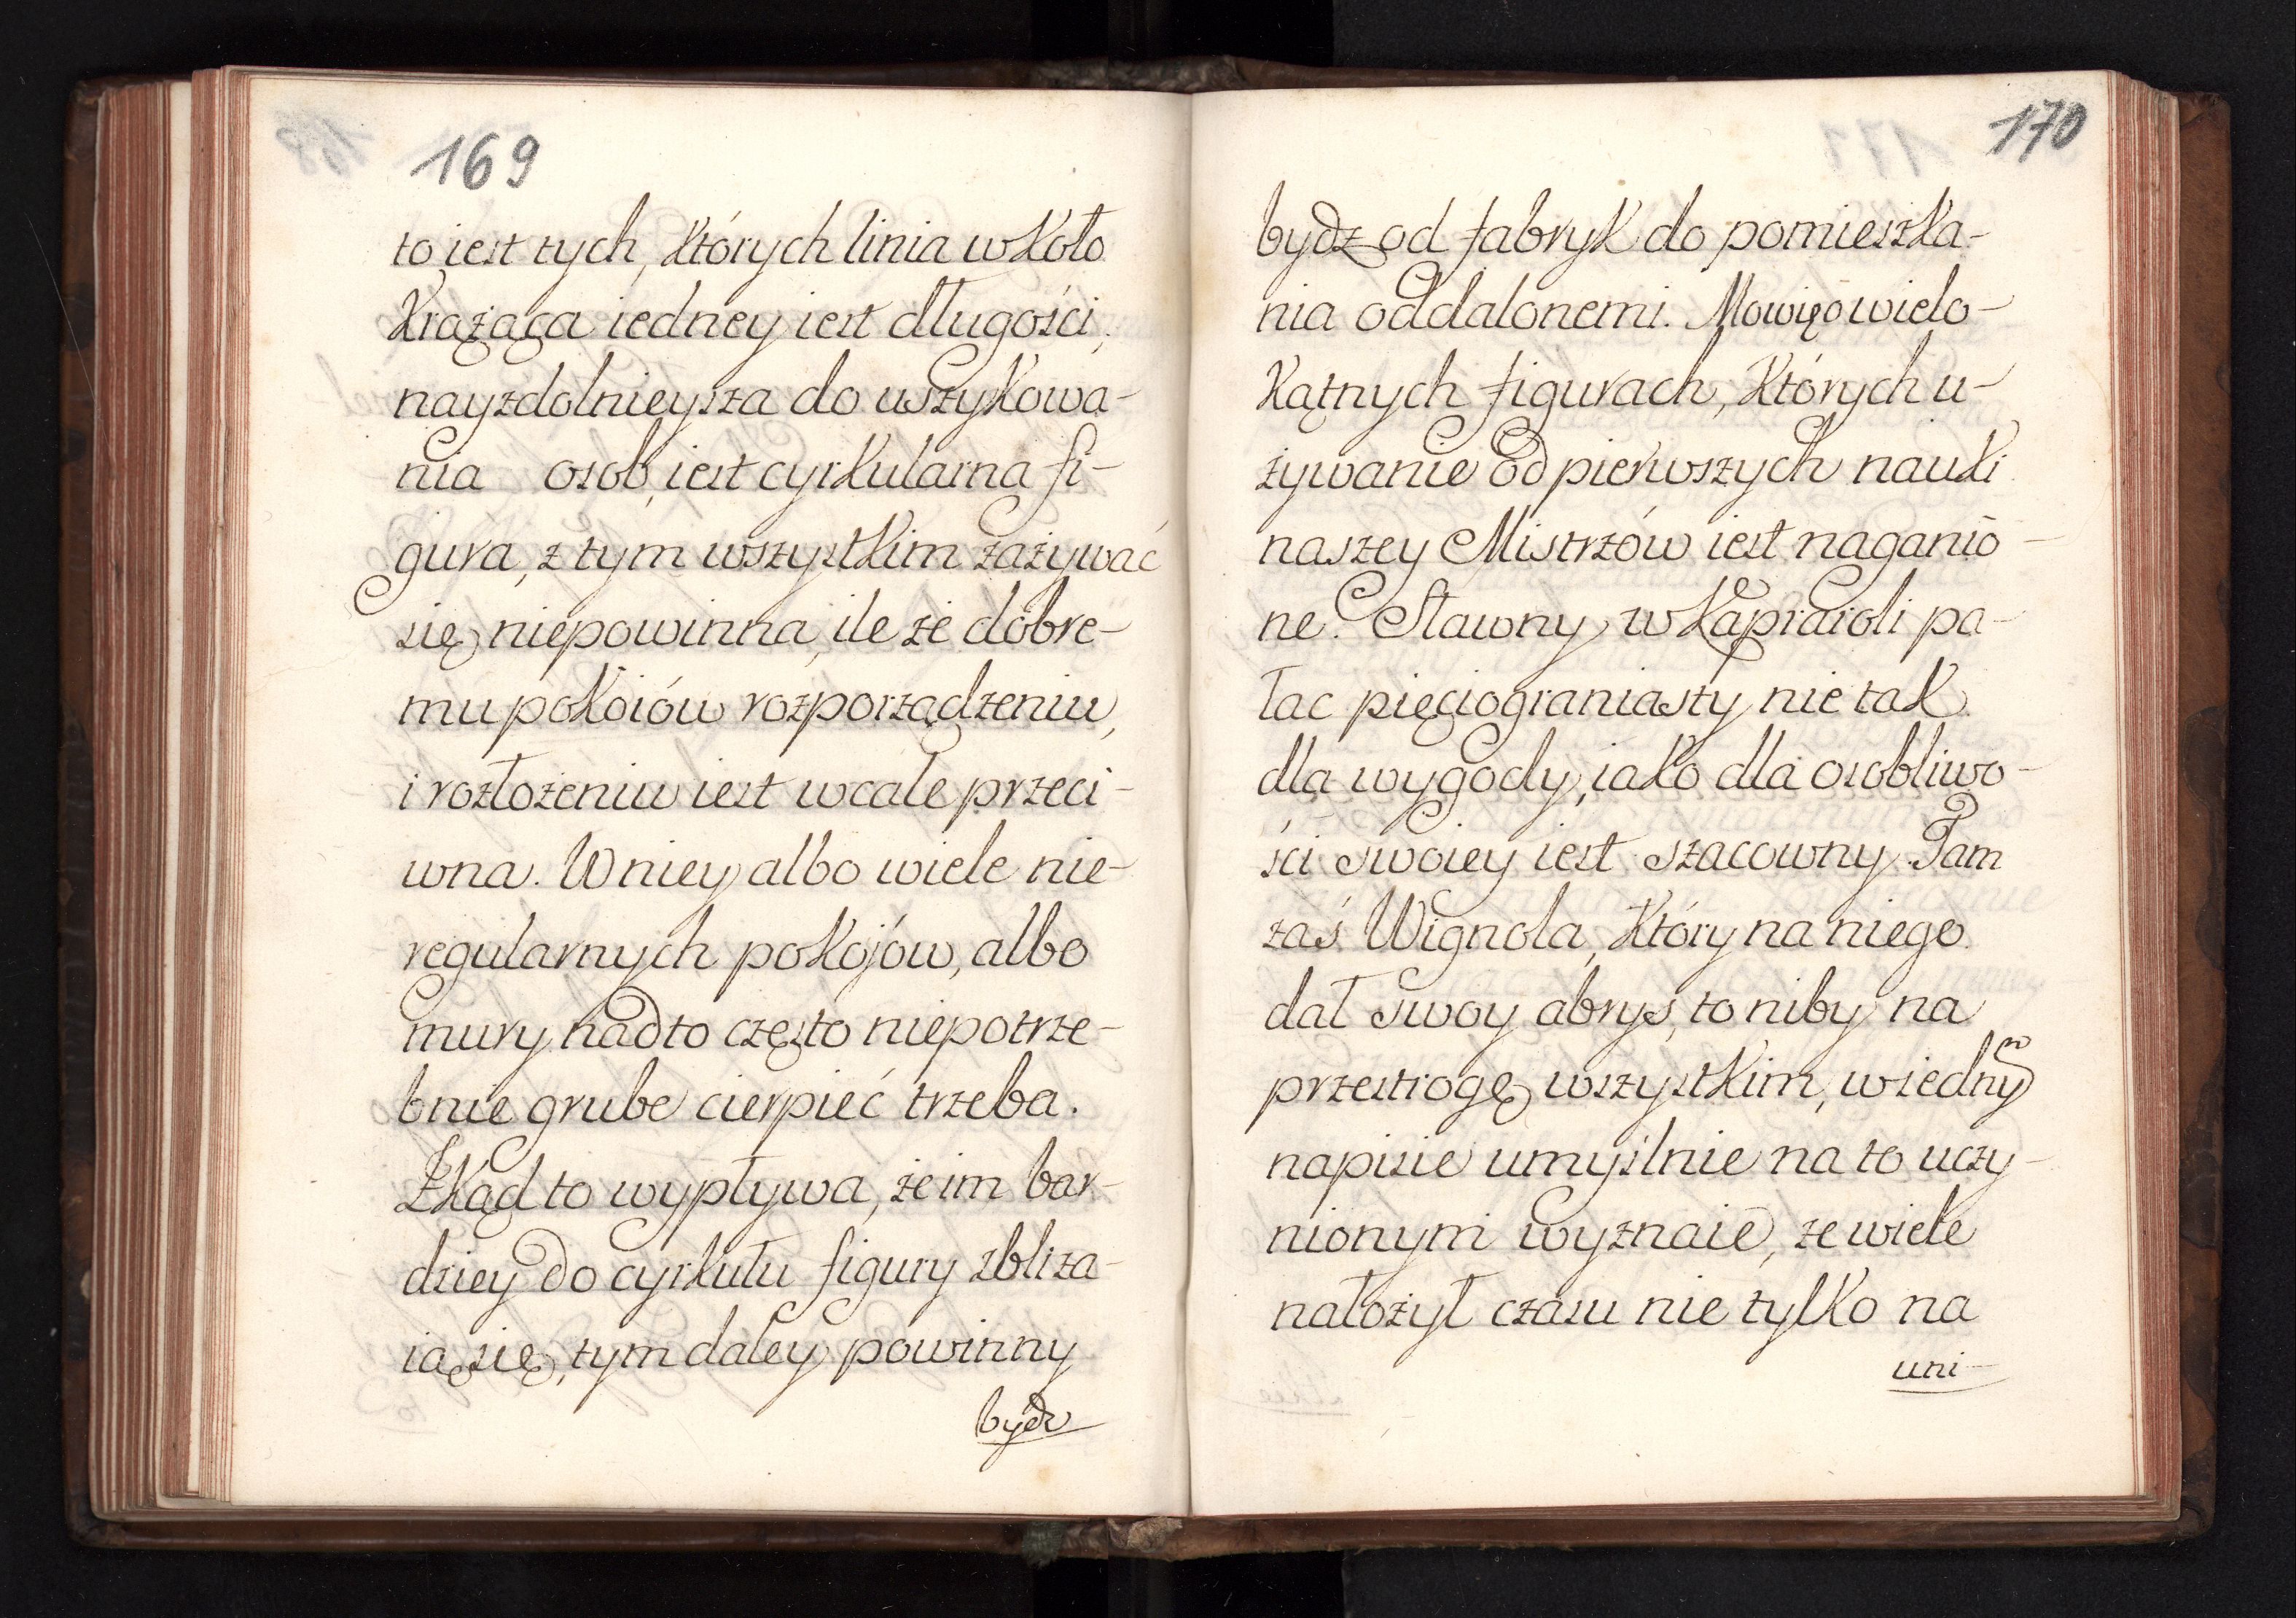 169
to iest tych, których linia w koło
krążąca iedney iest długości,
nayzdolnieysza do uszykowa-
nia osob, iest cyrkularna fi-
gura, z tym wszystkim zażywać
się niepowinna, ile że dobre-
mu pokoiów rozporządzeniu,
i rozłożeniu iest wcale przeci-
wna. W niey albo wiele nie-
regularnych pokojów, albo
mury nadto często niepotrze-
bnie grube cierpieć trzeba.
Zkąd to wypływa, że im bar-
dziey do cyrkułu figury zbliża-
ią się, tym daley powinny
bydź
170
bydz od fabryk do pomieszka-
nia oddalonemi. Mowię o wielo-
kątnych figurach, których u-
żywanie od pierwszych nauki
naszey Mistrzów iest naganio-
ne. Sławny w Kapraroli pa-
łac pięciograniasty nie tak
dla wygody, iako dla osobliwo-
ści swoiey iest szacowny. Tam
zaś Wignola, który na niego
dał swoy abrys, to niby na
przestrogę wszystkim, w iednyͫ
napisie umyślnie na to uczy-
nionym wyznaie, że wiele
nałożył czasu nie tylko na
uni-